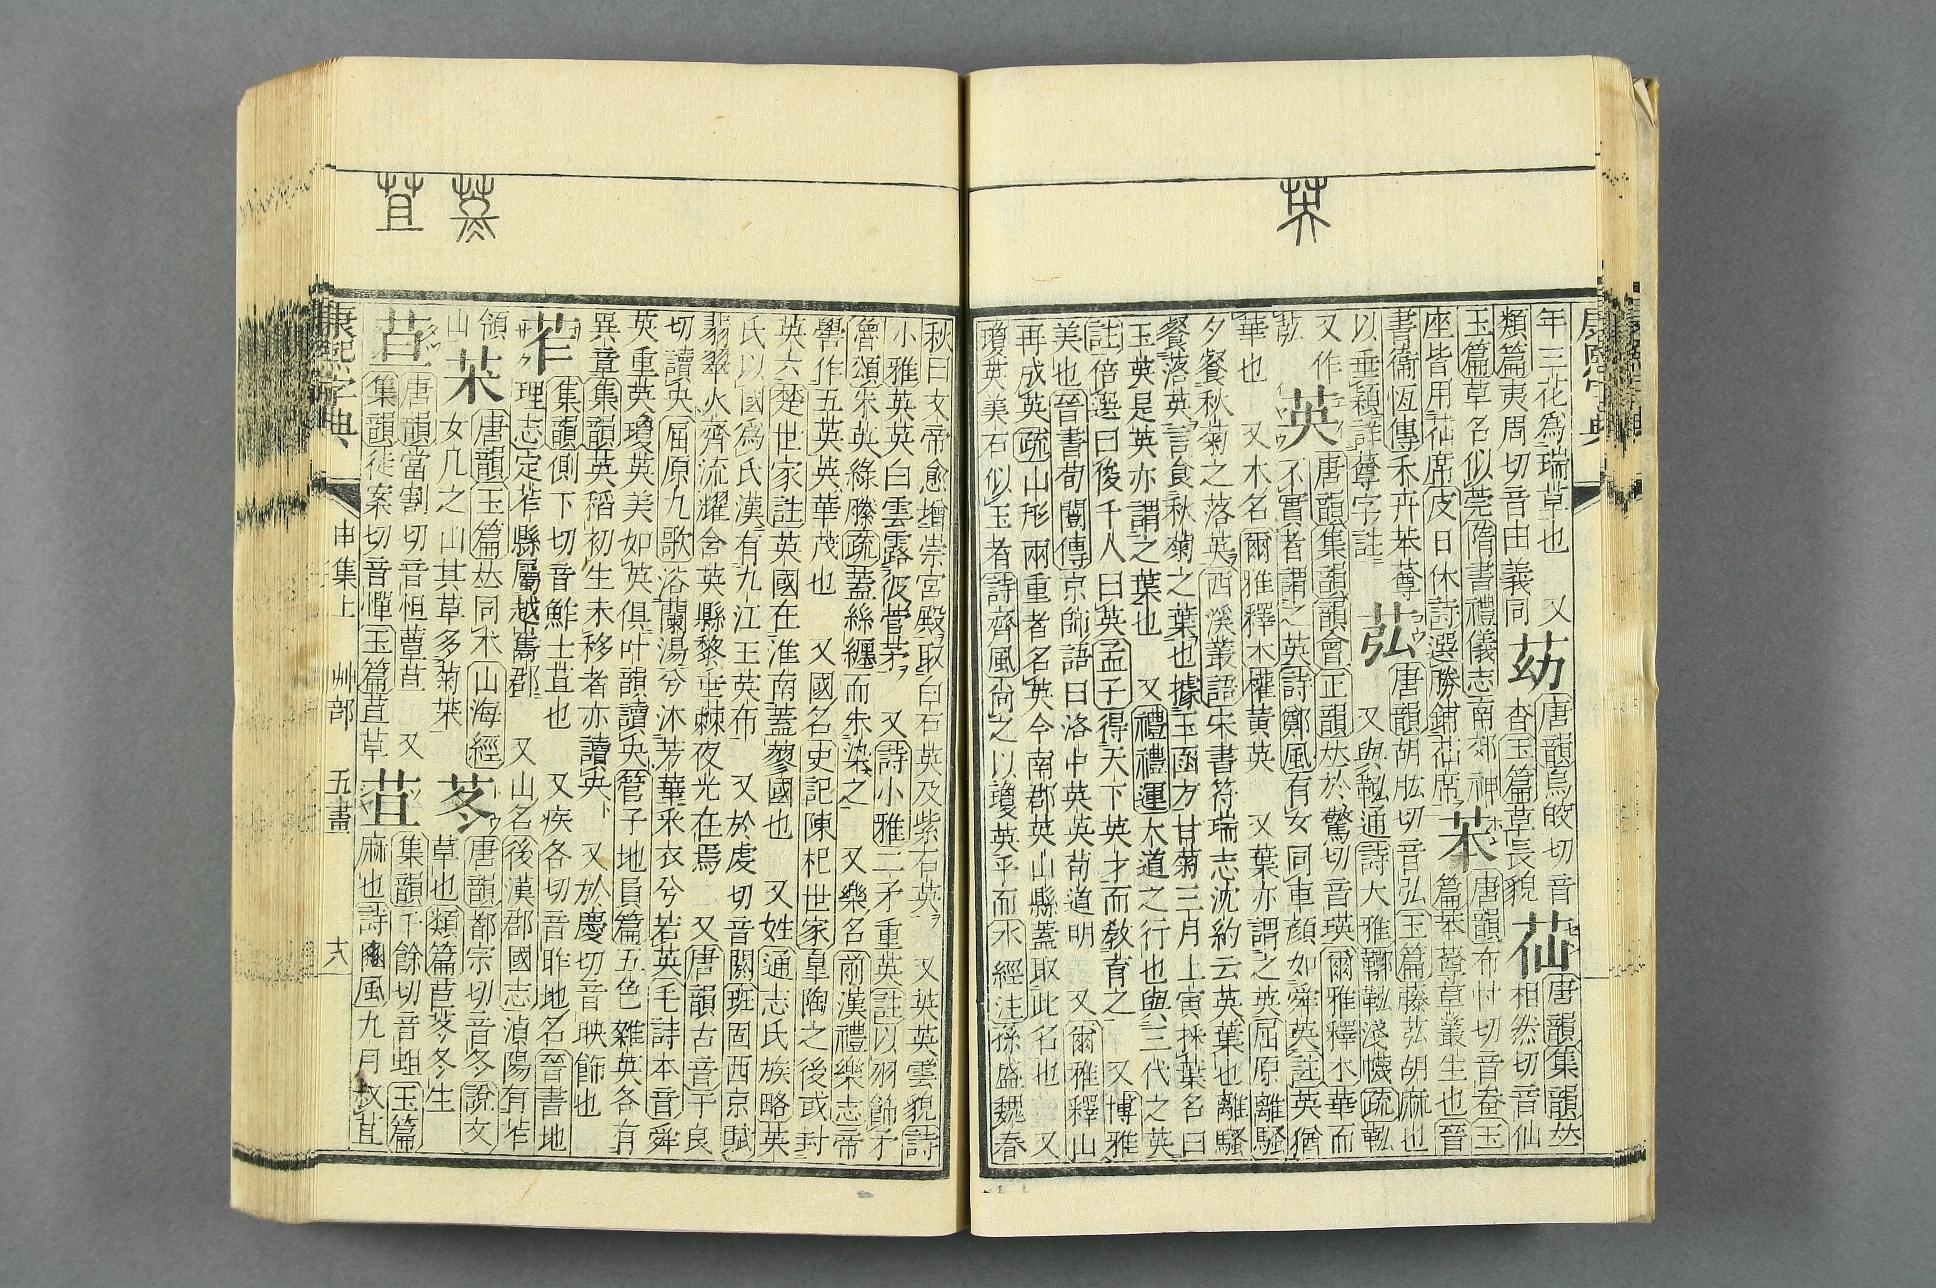 英
康熙字典
年三花爲瑞草也 又 苭 唐韻烏皎切音 苮 唐韻集韻𠀤
類篇夷周切音由義同 杳玉篇草長貌 相然切音仙
玉篇草名似莞隋書禮儀志南郊神 苯 唐韻布忖切音畚玉
座皆用苮席皮日休詩選勝鋪苮席 篇苯䔿草叢生也晉
書衞恆傳禾卉苯䔿 苰 唐韻胡肱切音弘玉篇藤苰胡麻也
以垂穎詳䔿字註 又與鞃通詩大雅鞹鞃淺幭疏鞃
又作 英 唐韻集韻韻會正韻𠀤於驚切音瑛爾雅釋木華而
苰 不實者謂之英詩鄭風有女同車顏如舜英註英猶
華也 又木名爾雅釋木權黃英 又葉亦謂之英屈原離騷
夕餐秋菊之落英西溪叢語宋書符瑞志沈約云英葉也離騷
餐落英言食秋菊之葉也據玉函方甘菊三月上寅採葉名曰
玉英是英亦謂之葉也 又禮禮運大道之行也與三代之英
註倍選曰俊千人曰英孟子得天下英才而敎育之 又博雅
美也晉書荀闓傳京師語曰洛中英英荀道明 又爾雅釋山
再成英疏山形兩重者名英今南郡英山縣蓋取此名也 又
瓊英美石似玉者詩齊風尚之以瓊英乎而水經注孫盛魏春
苳
苴
秋曰文帝愈增崇宮殿取白石英及紫石英 又英英雲貌詩
小雅英英白雲露彼菅茅 又詩小雅二矛重英註以羽飾矛
魯頌朱英綠縢疏蓋絲纏而朱染之 又樂名前漢禮樂志帝
嚳作五英英華茂也 又國名史記陳杞世家皐陶之後或封
英六楚世家註英國在淮南蓋蓼國也 又姓通志氏族略英
氏以國爲氏漢有九江王英布 又於虔切音關班固西京賦
翡翠火齊流耀含英縣黎垂棘夜光在焉 又唐韻古音于良
切讀央屈原九歌浴蘭湯兮沐芳華采衣兮若英毛詩本音舜
英重英瓊英美如英俱叶韻讀央管子地員篇五色雜英各有
異章集韻英稻初生未移者亦讀英 又於慶切音映飾也
苲 集韻側下切音鮓土苴也 又疾各切音昨地名晉書地
理志定苲縣屬越巂郡 又山名後漢郡國志滇陽有苲
領 苿 唐韻玉篇𠀤同朮山海經 苳 唐韻都宗切音冬說文
山 女几之山其草多菊苿 草也類篇苣苳冬生
䒟 唐韻當割切音怛蕇䒟 又 苴 集韻千餘切音蛆玉篇
集韻徒案切音憚玉篇䒟草 麻也詩豳風九月叔苴
康熙字典
申集上
艸部
五畫